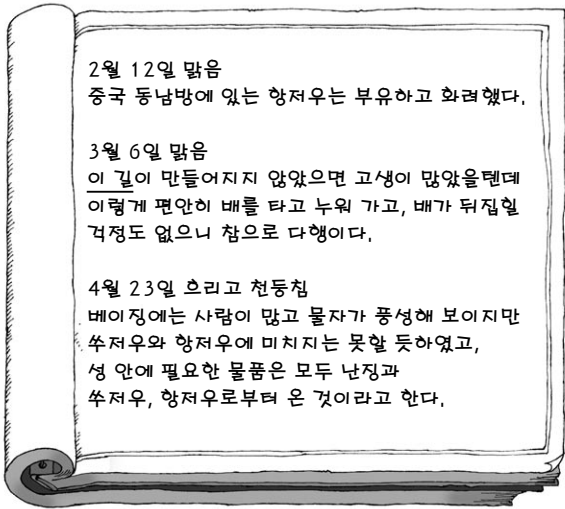 2월 12일 맑음
중국 동남방에 있는 항저우는 부유하고 화려했다.
3월 6일 맑음
이 길이 만들어지지 않았으면 고생이 많았을텐데
이렇게 편안히 배를 타고 누워 가고, 배가 뒤집힐
걱정도 없으니 참으로 다행이다.
4월 23일 흐리고 천둥침
베이징에는 사람이 많고 물자가 풍성해 보이지만
쑤저우와 항저우에 미치지는 못할 듯하였고,
성 안에 필요한 물품은 모두 난징과
쑤저우, 항저우로부터 온 것이라고 한다.